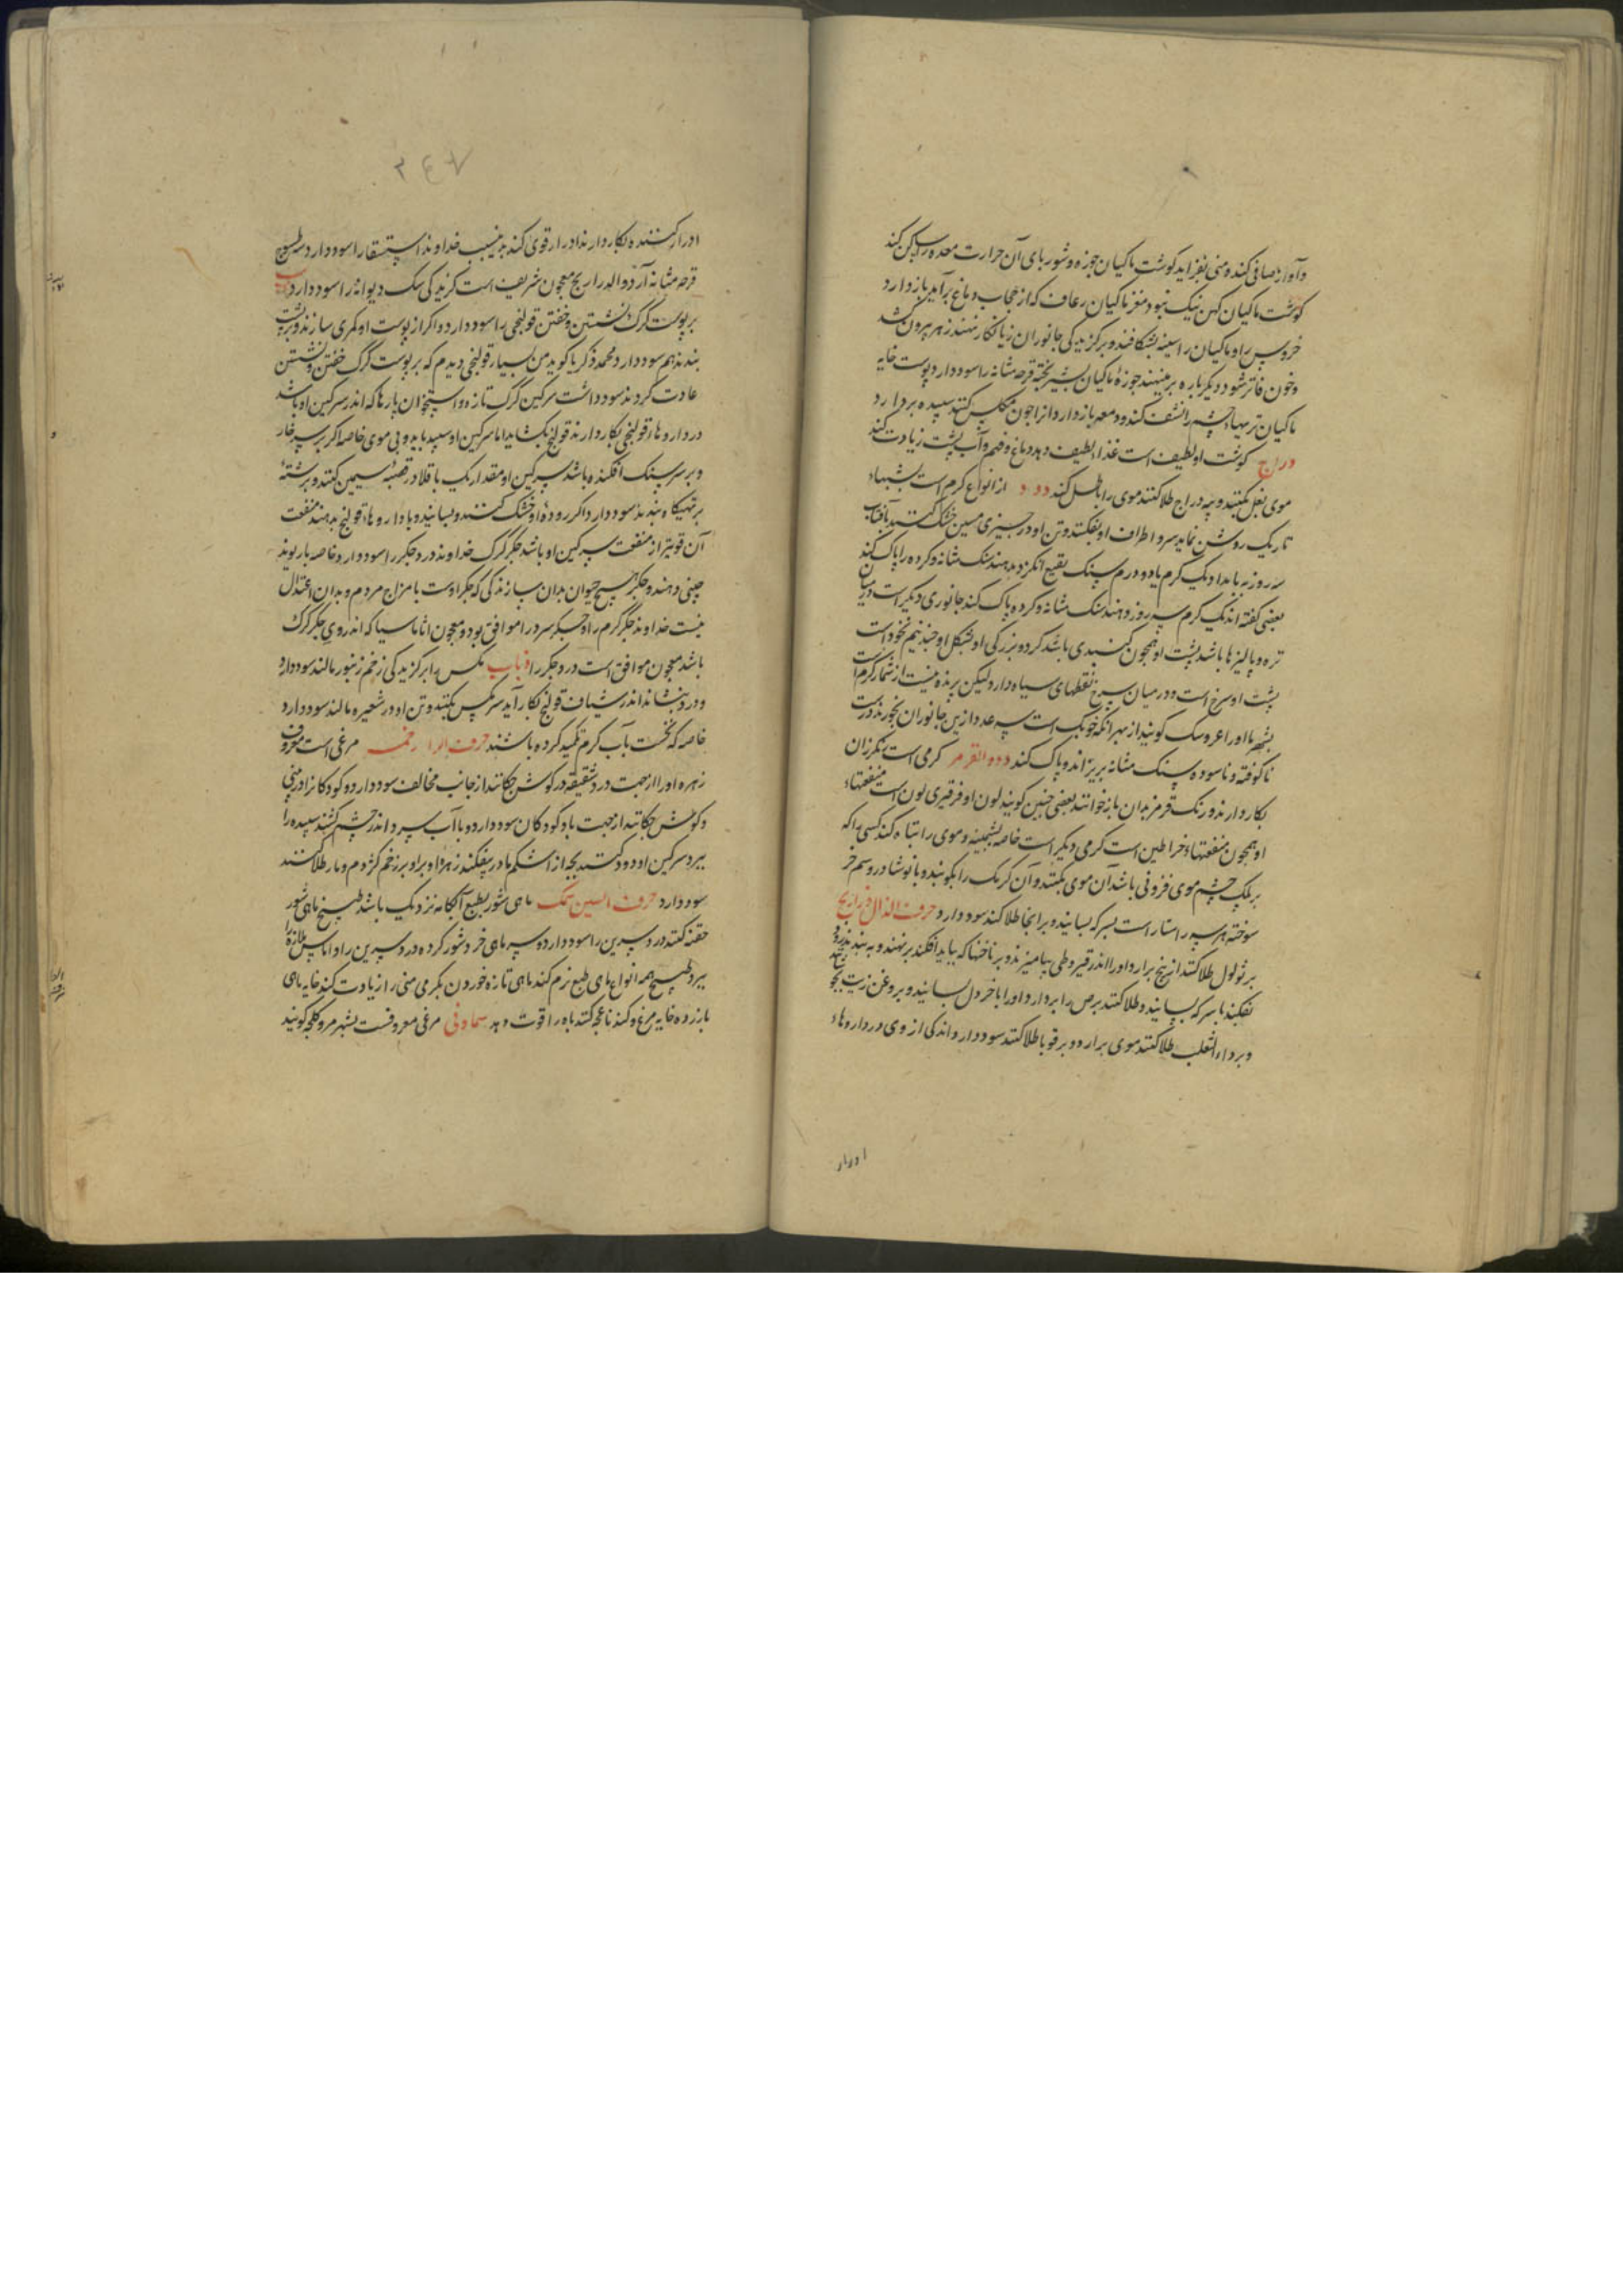 و آواز صافی کند و منی بفزاید گوشت ماکیان جوزه و شوربای آن حرارت معده را ساکن کند
گوشت ماکیان کهن نیک نبود و مغز ماکیان رعاف که از حجاب دماغ برآید باز دارد
خروس را و ماکیان را سینه بشکافند و بر گزیدگی جانوران زیانکار نهند زهر بیرون کشد
و خون فاتر شود دیگر باره بر مینهند جوزهٔ ماکیان بشیر پخته قرحه مثانه را سود دارد پوست خایه
ماکیان تریهاء چشم را نشف کند و دمعه باز دارد از اجون مکلس کنند سپیده بردارد
دراج گوشت او لطیف است غذاء لطیف دهد دماغ و فهم و آب پشت زیادت کند
موی بغل بکنند و پیه دراج طلا کنند موی را باطل کند دود از انواع کرم است بشبهاء
تاریک روشن نماید سر و اطراف او بفکنند و تن او در چیزی مسین خشک کنند بآفتاب
سه روز به بامداد یک کرم یا دو درم سنگ بنقیع انگزد بدهند سنگ مثانه و کرده را پاک کند
بعضی گفته اند یک کرم سه روز دهند سنگ مثانه و کرده پاک کند جانوری دیگر است در میان
تره و پالیزها باشد پشت او همچون گنبدی باشد کرد و بزرگی او بشکل او چند نیم نخود است
پشت او سرخ است و در میان سرخ نقطهای سیاه دارد لیکن پرنده نیست از شمار کرم است
بشهر ما او را عروسک گویند از بهر آنکه خوبک است سه عدد ازین جانوران بخورند درست
ناکوفته و ناسوده سنگ مثانه بریزاند و پاک کند دوده القرمز کرمی است رنگرزان
بکار دارند و رنگ قرمز بدان باز خوانند بعضی چنین گویند لون او فرفیری لون است منفعتهاء
او همچون منفعتهاء خراطین است کرمی دیگر است خاصه پشمینه و موی را تباه کند کسی را که
بر پلک چشم موی فزونی باشد آن موی بکنند و آن کرمک را بکوبند و با نوشادر و سم خر
سوخته هر سه راستا راست بسرکه بسایند و بر آنجا طلا کنند سود دارد حرف الذال ذراریح
بر ثولول طلا کنند از بیخ برارد و او را اندر قیروطی بیامیزند و بر ناخنها که بباید افکند برنهند و به بندند زود
بفکند با سرکه بسایند و طلا کنند برص را بردارد و او را با خردل بسایند و بروغن زیت
و بر داء الثعلب طلا کنند موی برارد و بر قوبا طلا کنند سود دارد و اندکی از وی در داروهاء
ادرار
۲۴۷
ادرار کننده بکار دارند ادرار قوی کند بدینسبب خداوند استسقا را سود دارد
قرحه مثانه آرد دواء الذراریح معجون شریف است گزیدگی سگ دیوانه را سود دارد
بر پوست گرگ نشستن و خفتن قولنجی را سود دارد و اگر از پوست او کمری سازند و بر پشت
بندند هم سود دارد محمد زکریا گوید من بسیار قولنجی دیدم که بر پوست گرگ خفتن و نشستن
عادت کردند سود داشت سرگین گرگ تازه و استخوان پارها که اندر سرگین او باشد
در داروهاء قولنجی بکار دارند قولنج بگشاید اما سرگین او سپید باید و بی موی خاصه اگر بر سر خار
و بر سر سنگ افکنده باشد سرگین او مقدار یک باقلا در قصبهٔ سیمین کنند و برشته
بر تهیگاه بندند سود دارد و اگر رودهٔ او خشک کنند و بسایند و با داروهاء قولنج بدهند منفعت
آن قویتر از منفعت سرگین او باشد جگر گرگ خداوند درد جگر را سود دارد خاصه با ریوند
چینی دهند و جگر هیچ حیوان بدان سازندگی که جگر اوست با مزاج مردم و بدان اعتدال
نیست خداوند جگر گرم را و جگر سرد را موافق بود و معجون اثاناسیا که اندر وی جگر گرگ
باشد معجون موافق است درد جگر را ذباب مگس را بر گزیدگی زخم زنبور مالند سود دارد
و درد بنشاند اندر شیاف قولنج بکار آید سر مگس بکنند و تن او در شعیره مالند سود دارد
خاصه که نخست بآب گرم تکمید کرده باشند حرف الرا رخمه مرغی است معروف
زهره او را از جهت درد شقیقه در گوش چکانند از جانب مخالف سود دارد و کودکانرا در بینی
و گوش چکانند از جهت باد کودکان سود دارد و با آب سرد اندر چشم کشند سپیده را
ببرد سرگین او دود کنند بچه از اشکم مادر بیفکند زهرهٔ او بر زخم گژدم و مار طلا کنند
سود دارد حرف السین سمک ماهی شور بطبع آبکامه نزدیک باشد طبیخ ماهی شور
حقنه کنند درد سرین را سود دارد و سر ماهی خرد شور کرده درد سرین را و اماس ملازه را
ببرد طبیخ همه انواع ماهی طبع نرم کند ماهی تازه خوردن بگرمی منی را زیادت کند خایه ماهی
با زرده خایه مرغ و گندنا عجه کنند باه را قوت دهد سمانی مرغی معروفست بشهر مرو کلچه گویند